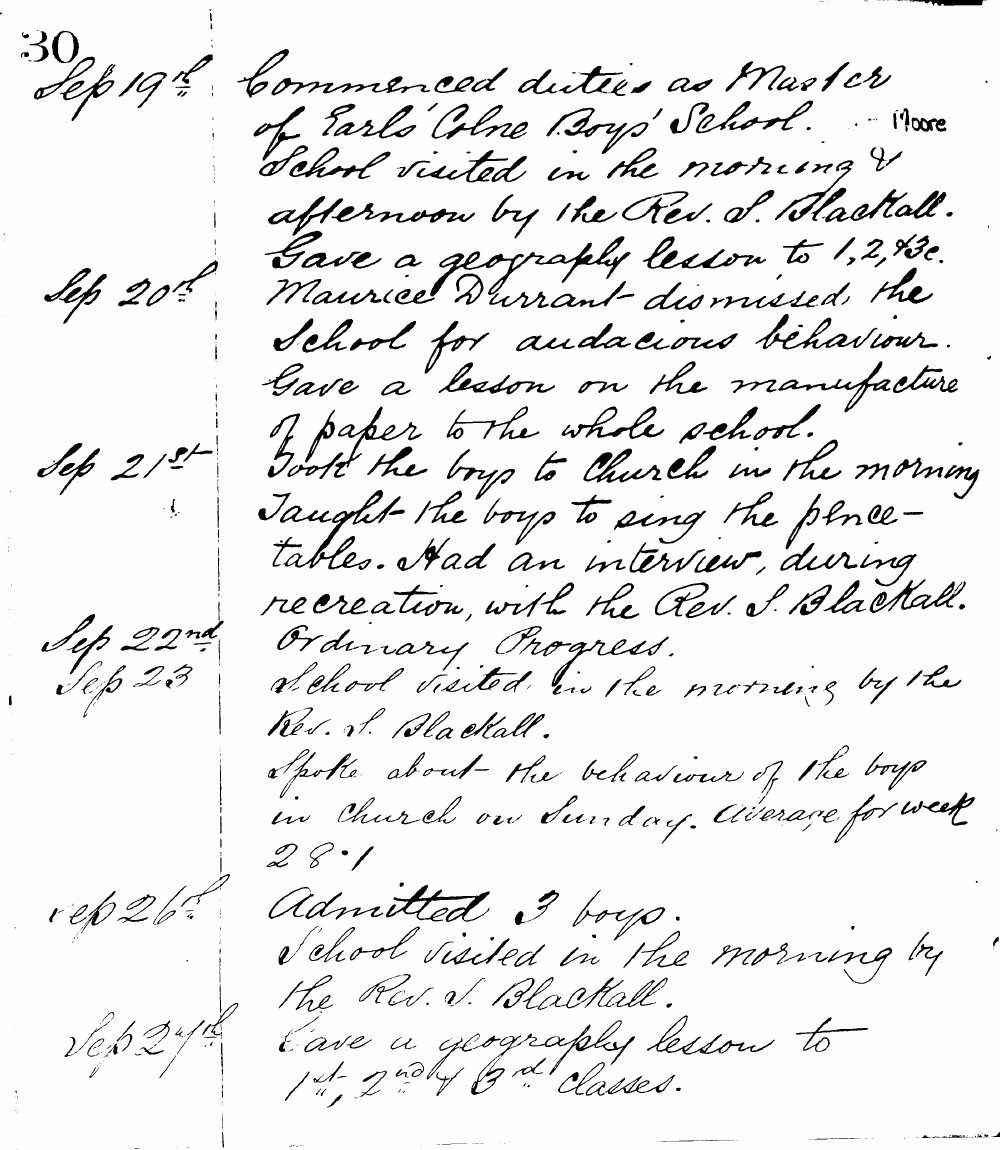 30
Sep 19th Commenced duties as Master
of Earls' Colne Boys' School. Moore
School visited in the morning &
afternoon by the Rev. S. Blackall.
Gave a geography lesson to 1, 2, & 3c.
Sep 20th Maurice Durrant dismissed the
School for audacious behaviour.
Gave a lesson on the manufacture
of paper to the whole school.
Sep 21st Took the boys to Church in the morning
Taught the boys to sing the pence-
tables. Had an interview, during
recreation, with the Rev. S. Blackall.
Sep 22nd Ordinary Progress.
Sep 23 School visited in the morning by the
Rev. S. Blackall.
Spoke about the behaviour of the boys
in Church on Sunday. Average for week
28.1
Sep 26th Admitted 3 boys.
School visited in the morning by
the Rev. S. Blackall.
Sep 27th Gave a geography lesson to
1st, 2nd & 3rd classes.